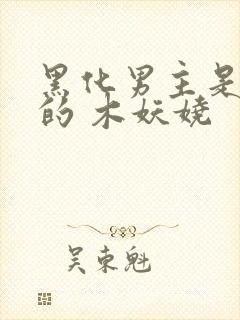 黑化男主是
的 木妖娆
吴东魁